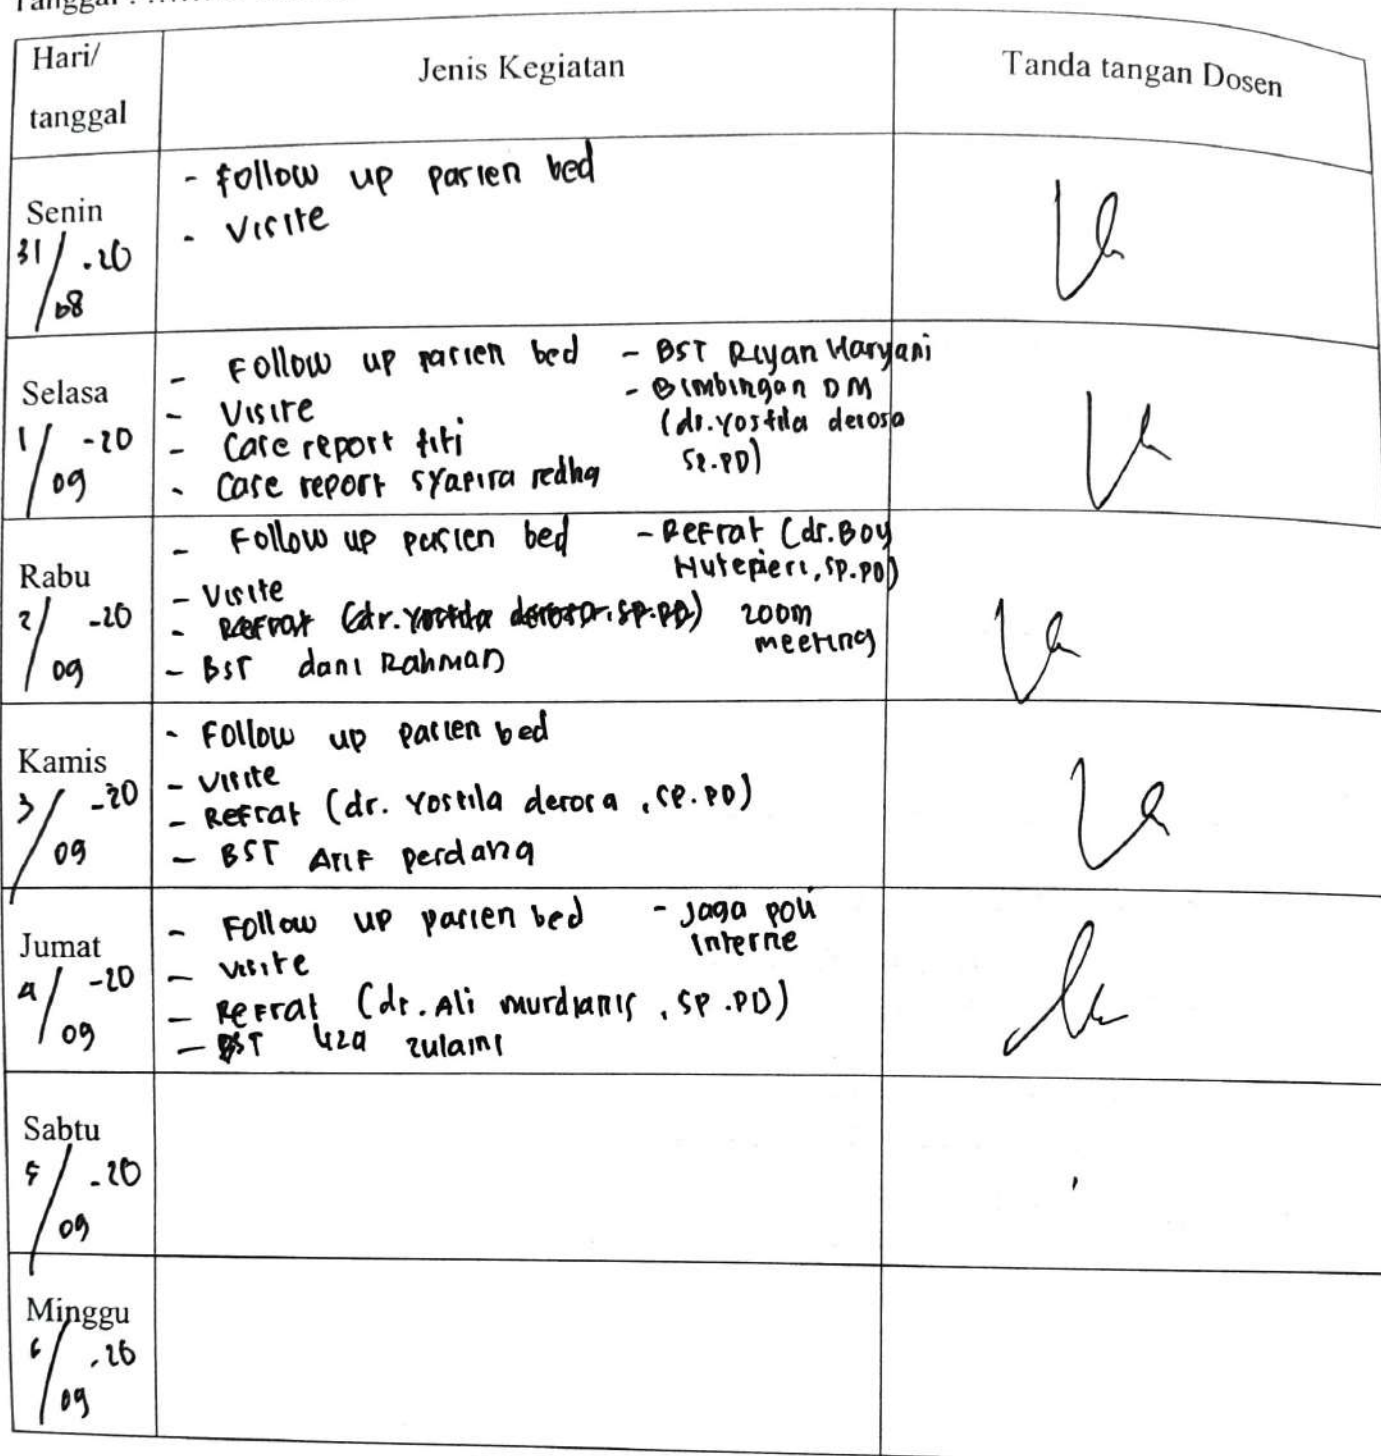 Tanggal : ..........
Hari/
tanggal
Jenis Kegiatan
Tanda tangan Dosen
Senin
31/08-20
- Follow up pasien bed
- Visite
Selasa
1/09-20
- Follow up pasien bed
- Visite
- Case report titi
- Case report syapira redha
- BST Riyan Haryani
- Bimbingan DM
(dr. Yostila derosa
Sp.PD)
Rabu
2/09-20
- Follow up pasien bed
- Visite
- Refrat (dr. Yostila derosa, SP.PD)
- BST dani Rahman
- Refrat (dr. Boy
Hutepieri, SP.PD)
zoom
meeting
Kamis
3/09-20
- Follow up pasien bed
- Visite
- Refrat (dr. Yostila derosa, SP.PD)
- BST Arif perdana
Jumat
4/09-20
- Follow up pasien bed
- Visite
- Refrat (dr. Ali murdianis, SP.PD)
- BST liza zulaini
- Jaga poli
interne
Sabtu
5/09-20
Minggu
6/09-20